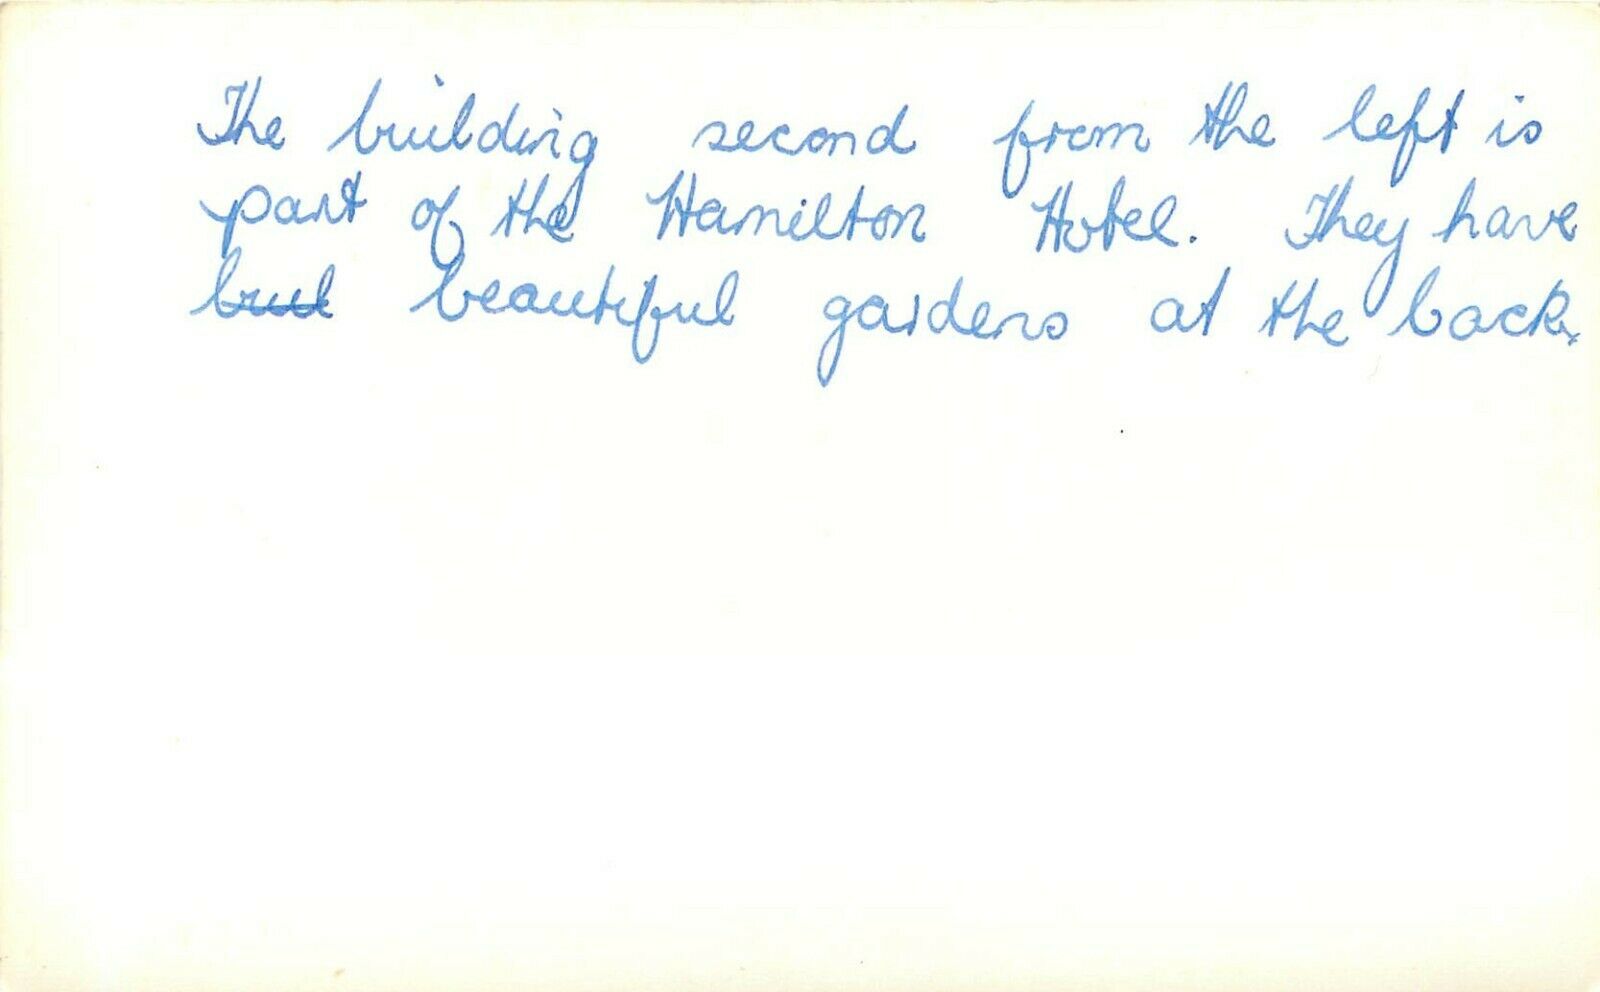 The building second from the left is
part of the Hamilton Hotel. They have
bu̶i̶l̶ beautiful gardens at the back.